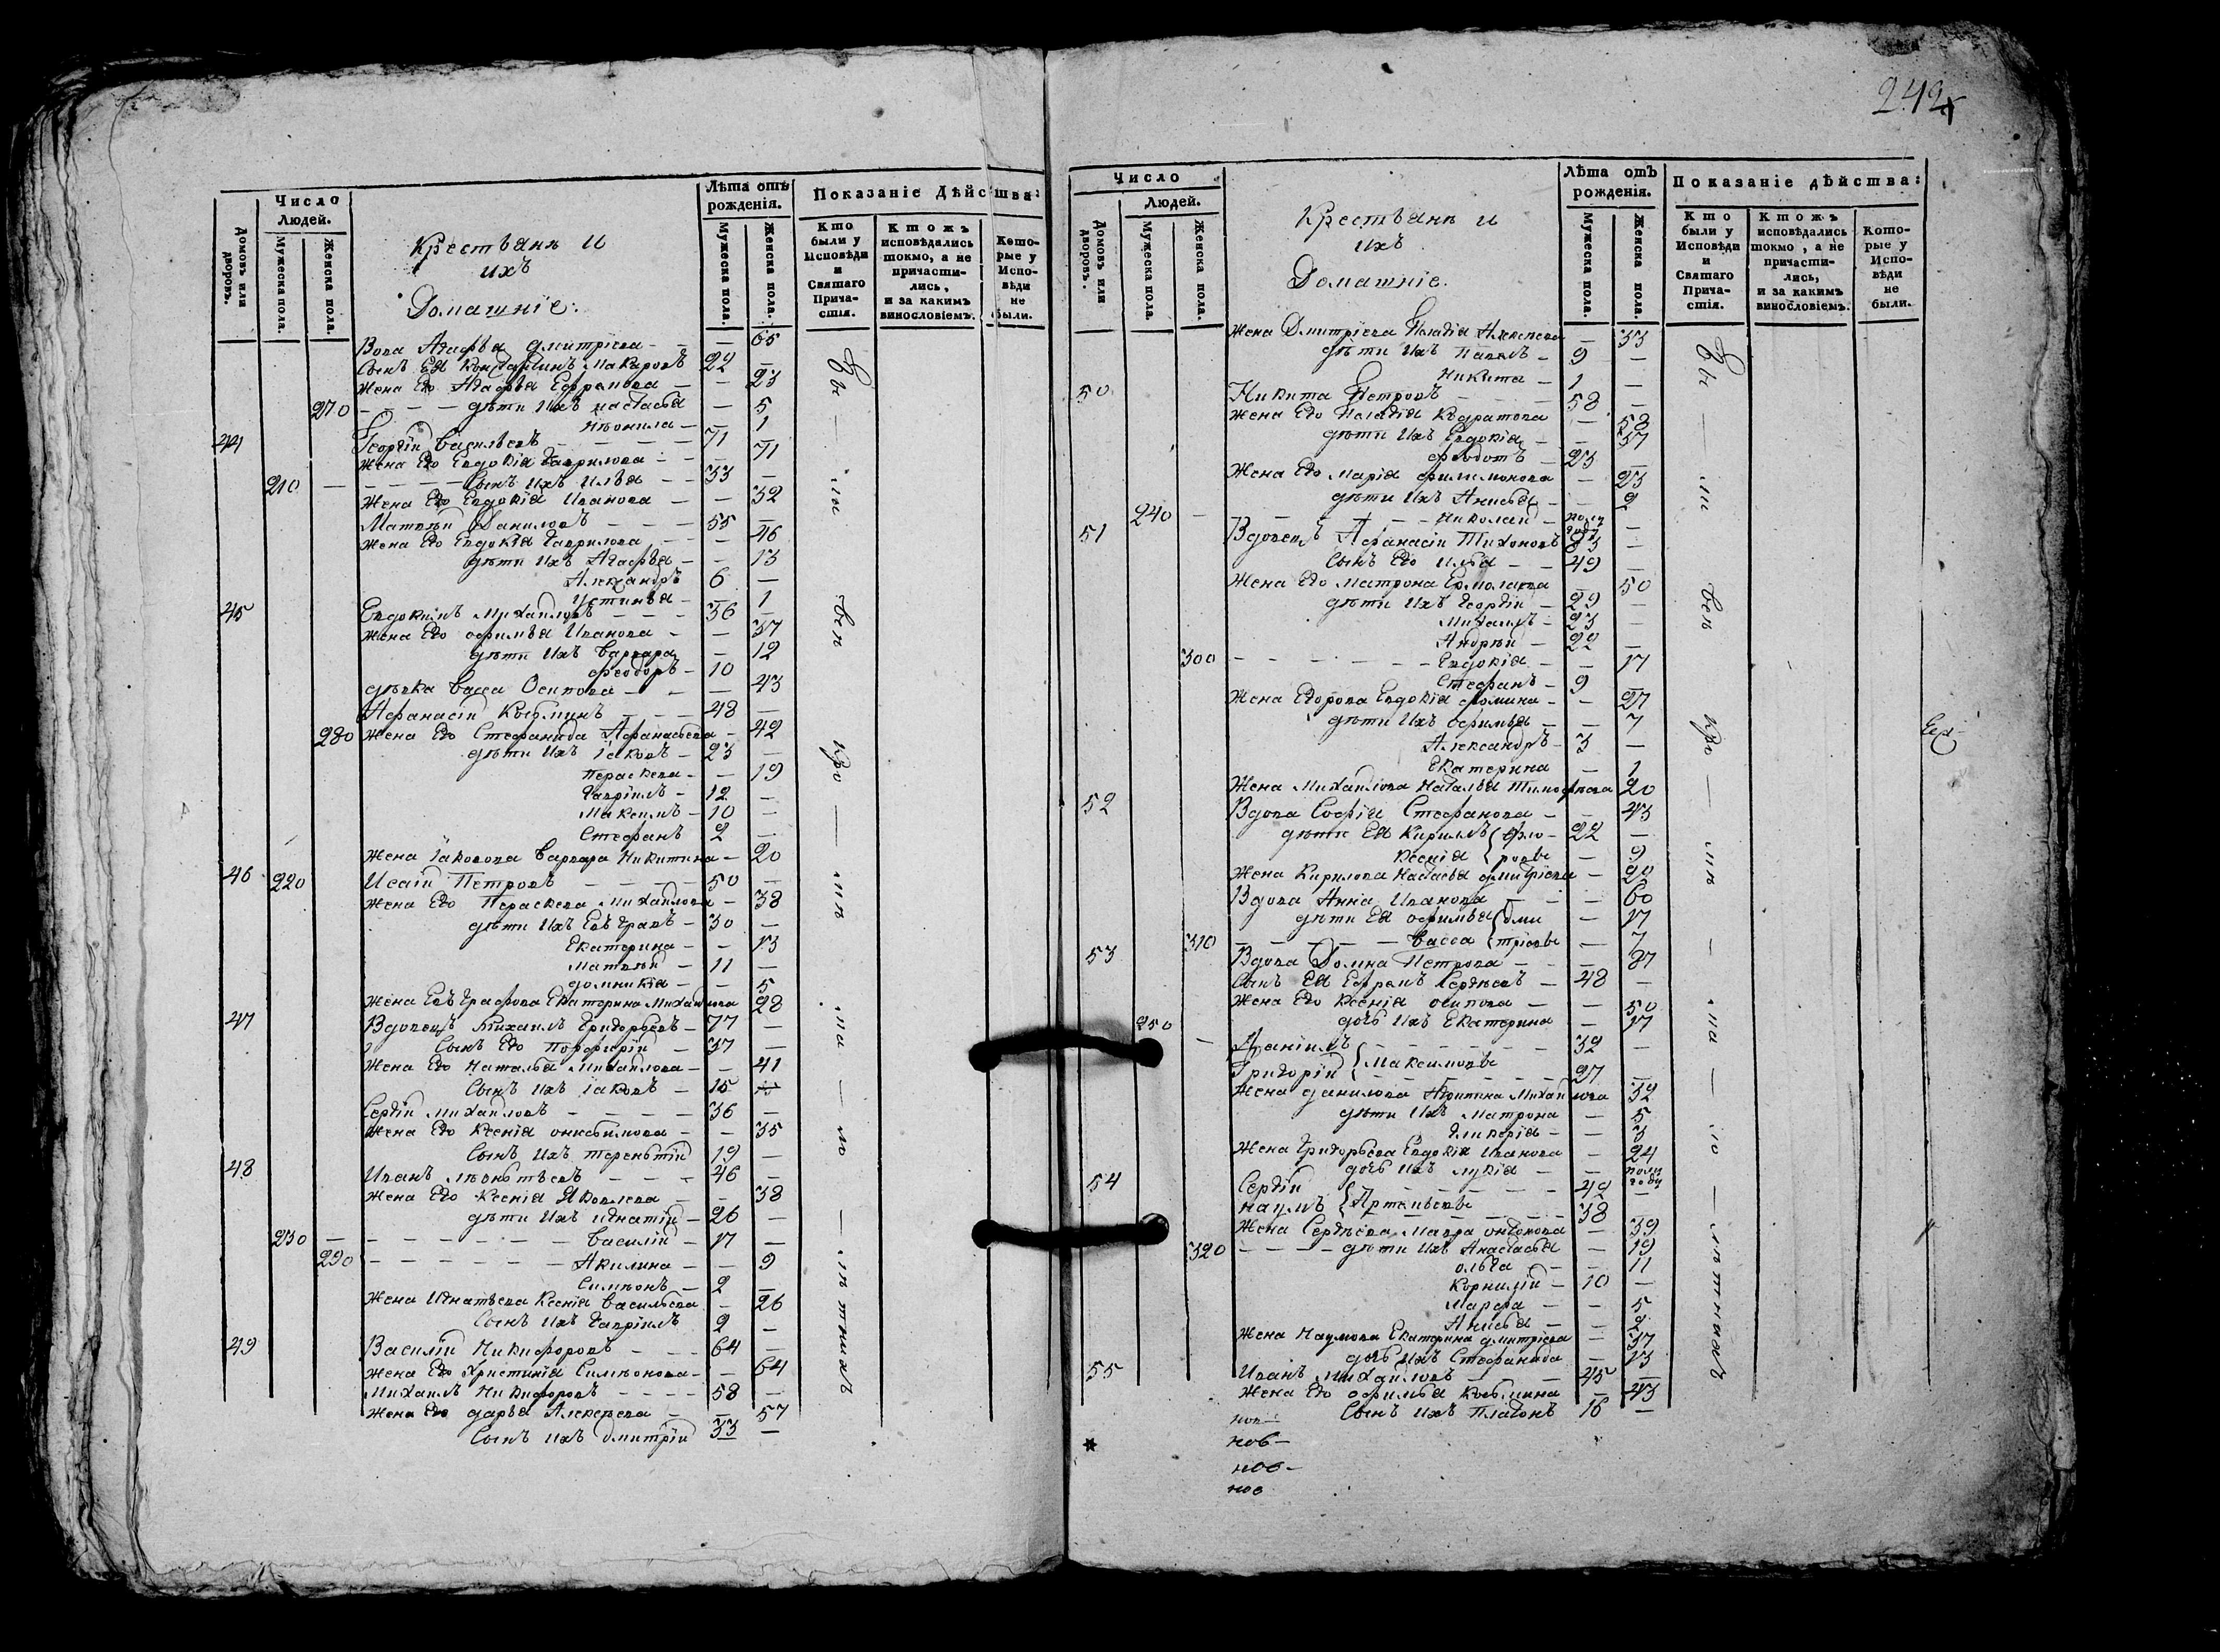 242
Число
Людей.
Домовъ или дворовъ.
Мужеска пола.
Женска пола.
Крестьянѣ и
ихъ
Домашніе:
Лѣта отъ рожденія.
Мужеска пола.
Женска пола.
Показаніе Дѣйства:
Кто были у Исповѣди и Святаго Причастія.
Ктожъ исповѣдались токмо, а не причастились, и за какимъ винословіемъ.
Которые у Исповѣди не были.
Вдова Агафья Дмитріева - - 65
Сынъ Ея Константинъ Макаровъ 22 -
Жена Его Агафья Ефремова - - 23
270 - - - дѣти Ихъ Настасья - 5
Неонила - - 1
44 Георгій Васильевъ - - - - 71 -
Жена Его Евдокія Гаврилова - - 71
210 - - - - - Сынъ Ихъ Илья - - 33 -
Жена Его Евдокія Иванова - - 32
Матвѣй Даниловъ - - - 55 -
Жена Его Евдокія Гаврилова - - 46
дѣти Ихъ Агафья - - 13
Александръ 6 -
Устинья - - 1
45 Евдокимъ Михайловъ - - - 36 -
Жена Его Офимья Иванова - - 37
дѣти Ихъ Варвара - 12
Феодоръ - 10 -
дѣвка Васса Осипова - - - 43
Афанасій Козминъ - - - 48 -
280 Жена Его Стефанида Афанасьева - 42
дѣти Ихъ Іаковъ - 23 -
Параскева - - 19
Гавріилъ - 12 -
Максимъ - 10 -
Стефанъ 2 -
Жена Іаковова Варвара Никитина - 20
46 220 Исаій Петровъ - - - - 50 -
Жена Его Параскева Михайлова - 38
дѣти Ихъ Евграфъ - 30 -
Екатерина - - 13
Матвѣй - 11 -
Домникія - - 5
Жена Евграфова Екатерина Михайлова 28
47 Вдовецъ Михаилъ Григорьевъ - 77 -
Сынъ Его Порфирій - 37 -
Жена Его Наталья Михайлова - - 41
Сынъ Ихъ Іаковъ - 15
Сергій Михайловъ - - - - 36 -
Жена Его Ксенія - - 35
Сынъ Ихъ Терентій 19 -
48 Иванъ Леонтьевъ - - - 46 -
Жена Его Ксенія Яковлева - - 38
дѣти Ихъ Игнатій - 26 -
230 - - - - - - Василій - 17 -
290 - - - - - - Акилина - - 9
Симеонъ - 2 -
Жена Игнатьева Ксенія Васильева - 26
Сынъ Ихъ Гавріилъ 2 -
49 Василій Никифоровъ - - - 64 -
Жена Его Христинія Симеонова - - 64
Михаилъ Никифоровъ - - - - 58 -
Жена Его Дарья Алексѣева - - 57
Сынъ Ихъ Дмитрій 33 -
Число
Людей.
Домовъ или дворовъ.
Мужеска пола.
Женска пола.
Крестьянѣ и
ихъ
Домашніе.
Лѣта отъ рожденія.
Мужеска пола.
Женска пола.
Показаніе дѣйства:
Кто были у Исповѣди и Святаго Причастія.
Ктожъ исповѣдались токмо, а не причастились, и за какимъ винословіемъ.
Которые у Исповѣди не были.
Жена Дмитріева Пелагія Алексеева - 33
дѣти Ихъ Павелъ - 9 -
Никита - 1 -
50 Никита Петровъ - - - - 58 -
Жена Его Пелагія Кодратова - 58
дѣти Ихъ Евдокія - - 37
Феодотъ - 23 -
Жена Его Марія Филимонова - 23
дѣти Ихъ Анисья - - 2
240 - - - - Николай - полу году -
51 Вдовецъ Афанасій Тихоновъ 83 -
Сынъ Его Илья - - 49 -
Жена Его Матрона Ермолаева - 50
дѣти Ихъ Георгій - 29 -
Михаилъ - 23 -
Андрей - 22 -
300 - - - - - - Евдокія - - 17
Стефанъ - 9 -
Жена Егорова Евдокія Фомина - - 27
дѣти Ихъ Офимья - - 7
Александръ - 3 -
Екатерина - 1
Жена Михайлова Наталья Тимофеева 20
52 Вдова Софія Стефанова - - 43
дѣти Ея Кирилъ } Фло- 22 -
Ксенія } ровы - 9
Жена Кирилова Настасья Дмитріева - 20
Вдова Анна Иванова - - - 60
дѣти Ея Офимья } Дми - 17
310 - - - - - Васса } тріевы - 7
53 Вдова Домна Петрова - - - 87
Сынъ Ея Ефремъ Сергѣевъ - 48 -
Жена Его Ксенія Осипова - - 50
250 дочь Ихъ Екатерина - 17
Даніилъ } - - - - - 32 -
Григорій } Максимовы - - - 27 -
Жена Данилова Михайлова 32
дѣти Ихъ Матрона - 5
Гликерія - - 3
Жена Григорьева Евдокія Иванова - 24
дочь Ихъ Лукія - - полу году
54 Сергій } - - - - - 42 -
Наумъ } Артемьевы - - - 38 -
Жена Сергѣева Мавра Антонова - 39
320 - - - - дѣти Ихъ Анастасья - 19
Ольга - - 11
Корнилій - 10 -
Марфа - - 5
Анисья - - 2
Жена Наумова Екатерина Дмитріева - 37
дочь Ихъ Стефанида - 13
55 Иванъ Михайловъ - - - 45 -
Жена Его Офимья Козмина - 43
Сынъ Ихъ Платонъ 16 -
нов-
нов-
нов-
нов